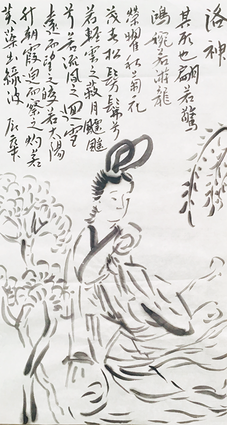 洛神
其形也翩若驚
鴻婉若游龍
榮曜秋菊華
茂春松髣髴兮
若輕雲之蔽月飄飄
兮若流風之迴雪
遠而望之皎若太陽
升朝霞迫而察之灼若
芙蕖出綠波